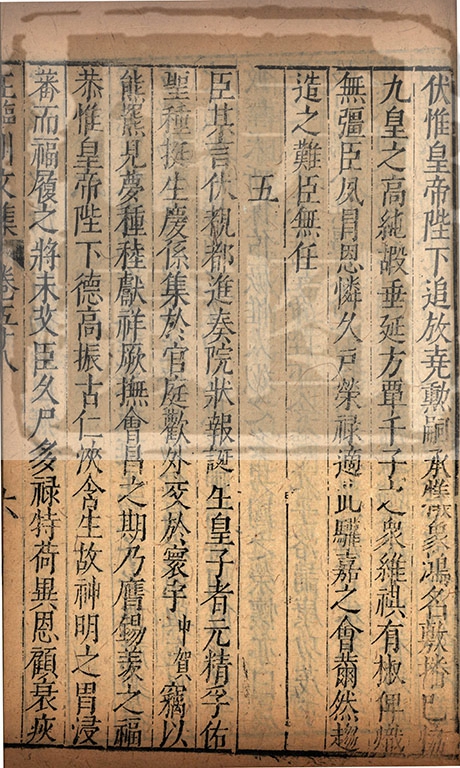 伏惟皇帝陛下追放堯勲嗣承象鴻名敷播已協
九皇之高純嘏垂延方覃千子之衆維祺有椒俾熾
無彊臣夙冒恩憐久尸榮祿適此驩嘉之會薾然趨
造之難臣無任
五
臣某言伏覩都進奏院狀報誕生皇子者元精孚佑
聖種挺生慶係集於宫庭歡外交於寰宇中賀竊以
熊羆見夢種稑獻祥厥撫會昌之期乃膺錫羨之福
恭惟皇帝陛下德高振古仁浹含生故神明之胄浸
蕃而福履之將未艾臣久尸多祿特荷異恩顧衰疾
王臨川文集 卷五十八 六